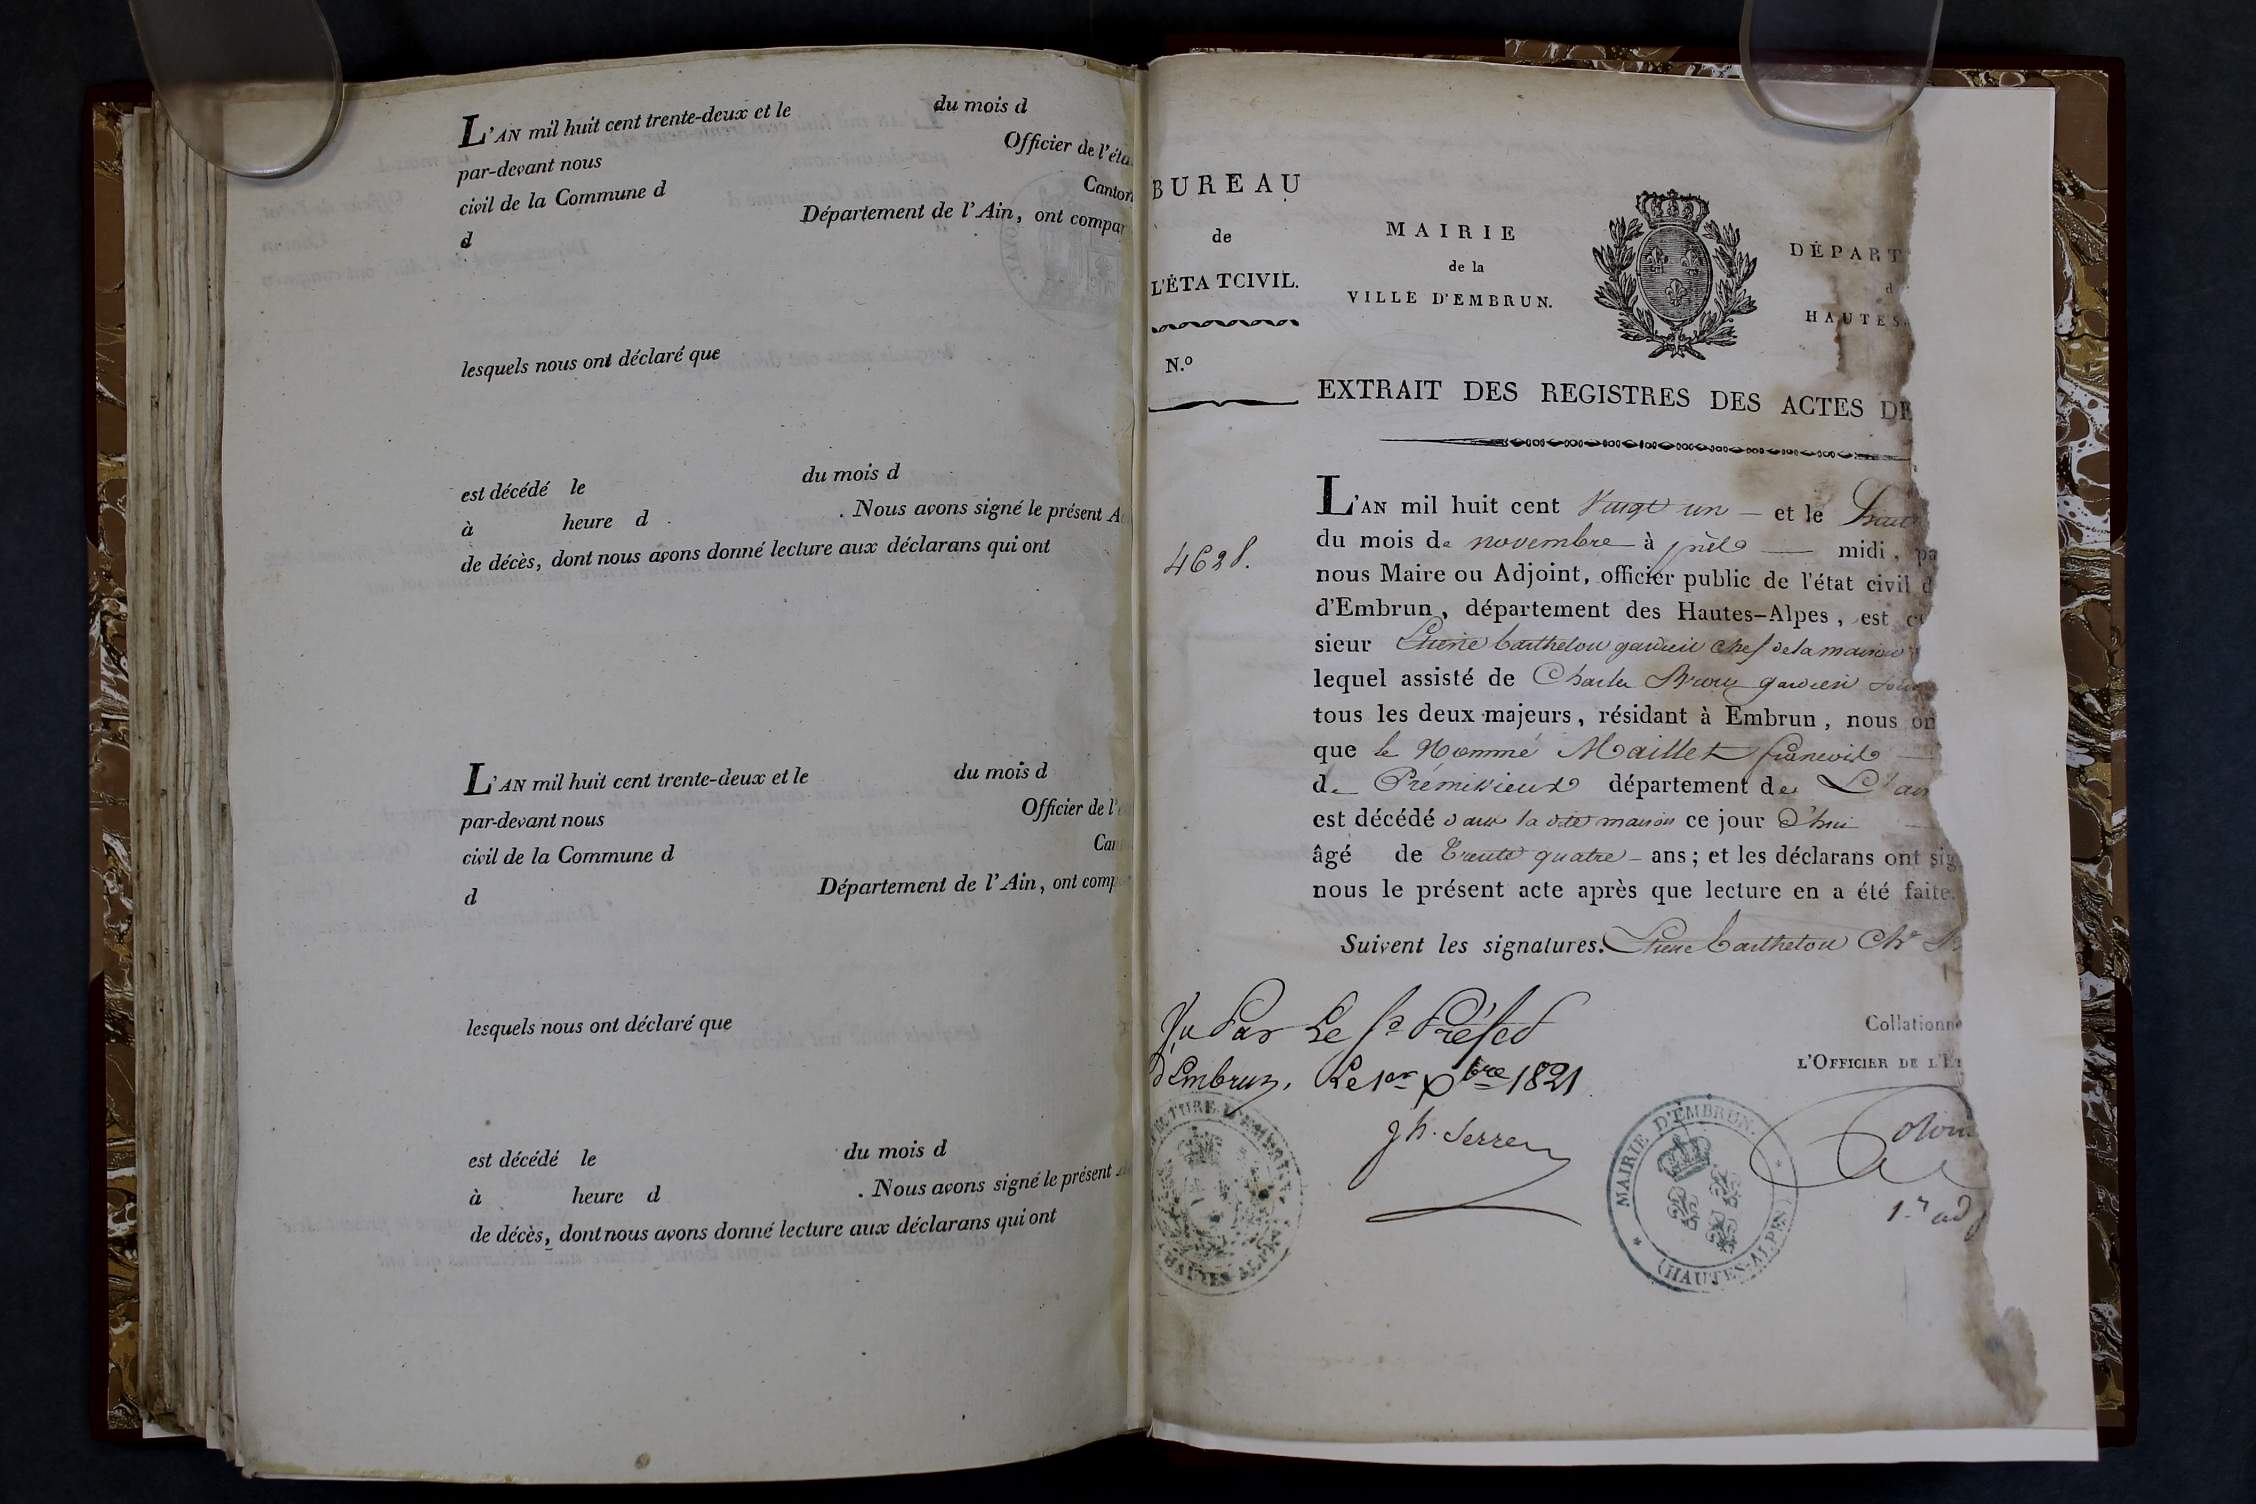 L'AN mil huit cent trente-deux et le du mois d
par-devant nous Officier de l'éta
civil de la Commune d Canton
d Département de l'Ain, ont compar
lesquels nous ont déclaré que
est décédé le du mois d
à heure d . Nous avons signé le présent A
de décès, dont nous avons donné lecture aux déclarans qui ont
L'AN mil huit cent trente-deux et le du mois d
par-devant nous Officier de l'é
civil de la Commune d Can
d Département de l'Ain, ont comp
lesquels nous ont déclaré que
est décédé le du mois d
à heure d . Nous avons signé le présent
de décès, dont nous avons donné lecture aux déclarans qui ont
BUREAU
de
L'ÉTA TCIVIL.
N.o
4628.
MAIRIE
de la
VILLE D'EMBRUN.
DÉPART
d
HAUTES
EXTRAIT DES REGISTRES DES ACTES DE
L'AN mil huit cent Vingt un — et le
du mois de novembre à — midi, pa
nous Maire ou Adjoint, officier public de l'état civil d
d'Embrun, département des Hautes-Alpes, est c
sieur Barthelou gardien chef de la maison
lequel assisté de Charles gardien
tous les deux majeurs, résidant à Embrun, nous on
que le Nommé Maillet francois
de Prémisieux département de L'ain
est décédé dans la dite maison ce jour d'hui
âgé de Trente quatre - ans; et les déclarans ont sig
nous le présent acte après que lecture en a été faite.
Suivent les signatures. Barthelou Ch.r
Vu Par Le S.s Préfet
d'Embrun, Le 1er Xbre 1821
Jh. Serres
Collationné
L'OFFICIER DE L'É
1.r adj
MAIRIE D'EMBRUN.
(HAUTES-ALPES)
ECTURE D'EMBRUN
HAUTES ALPES